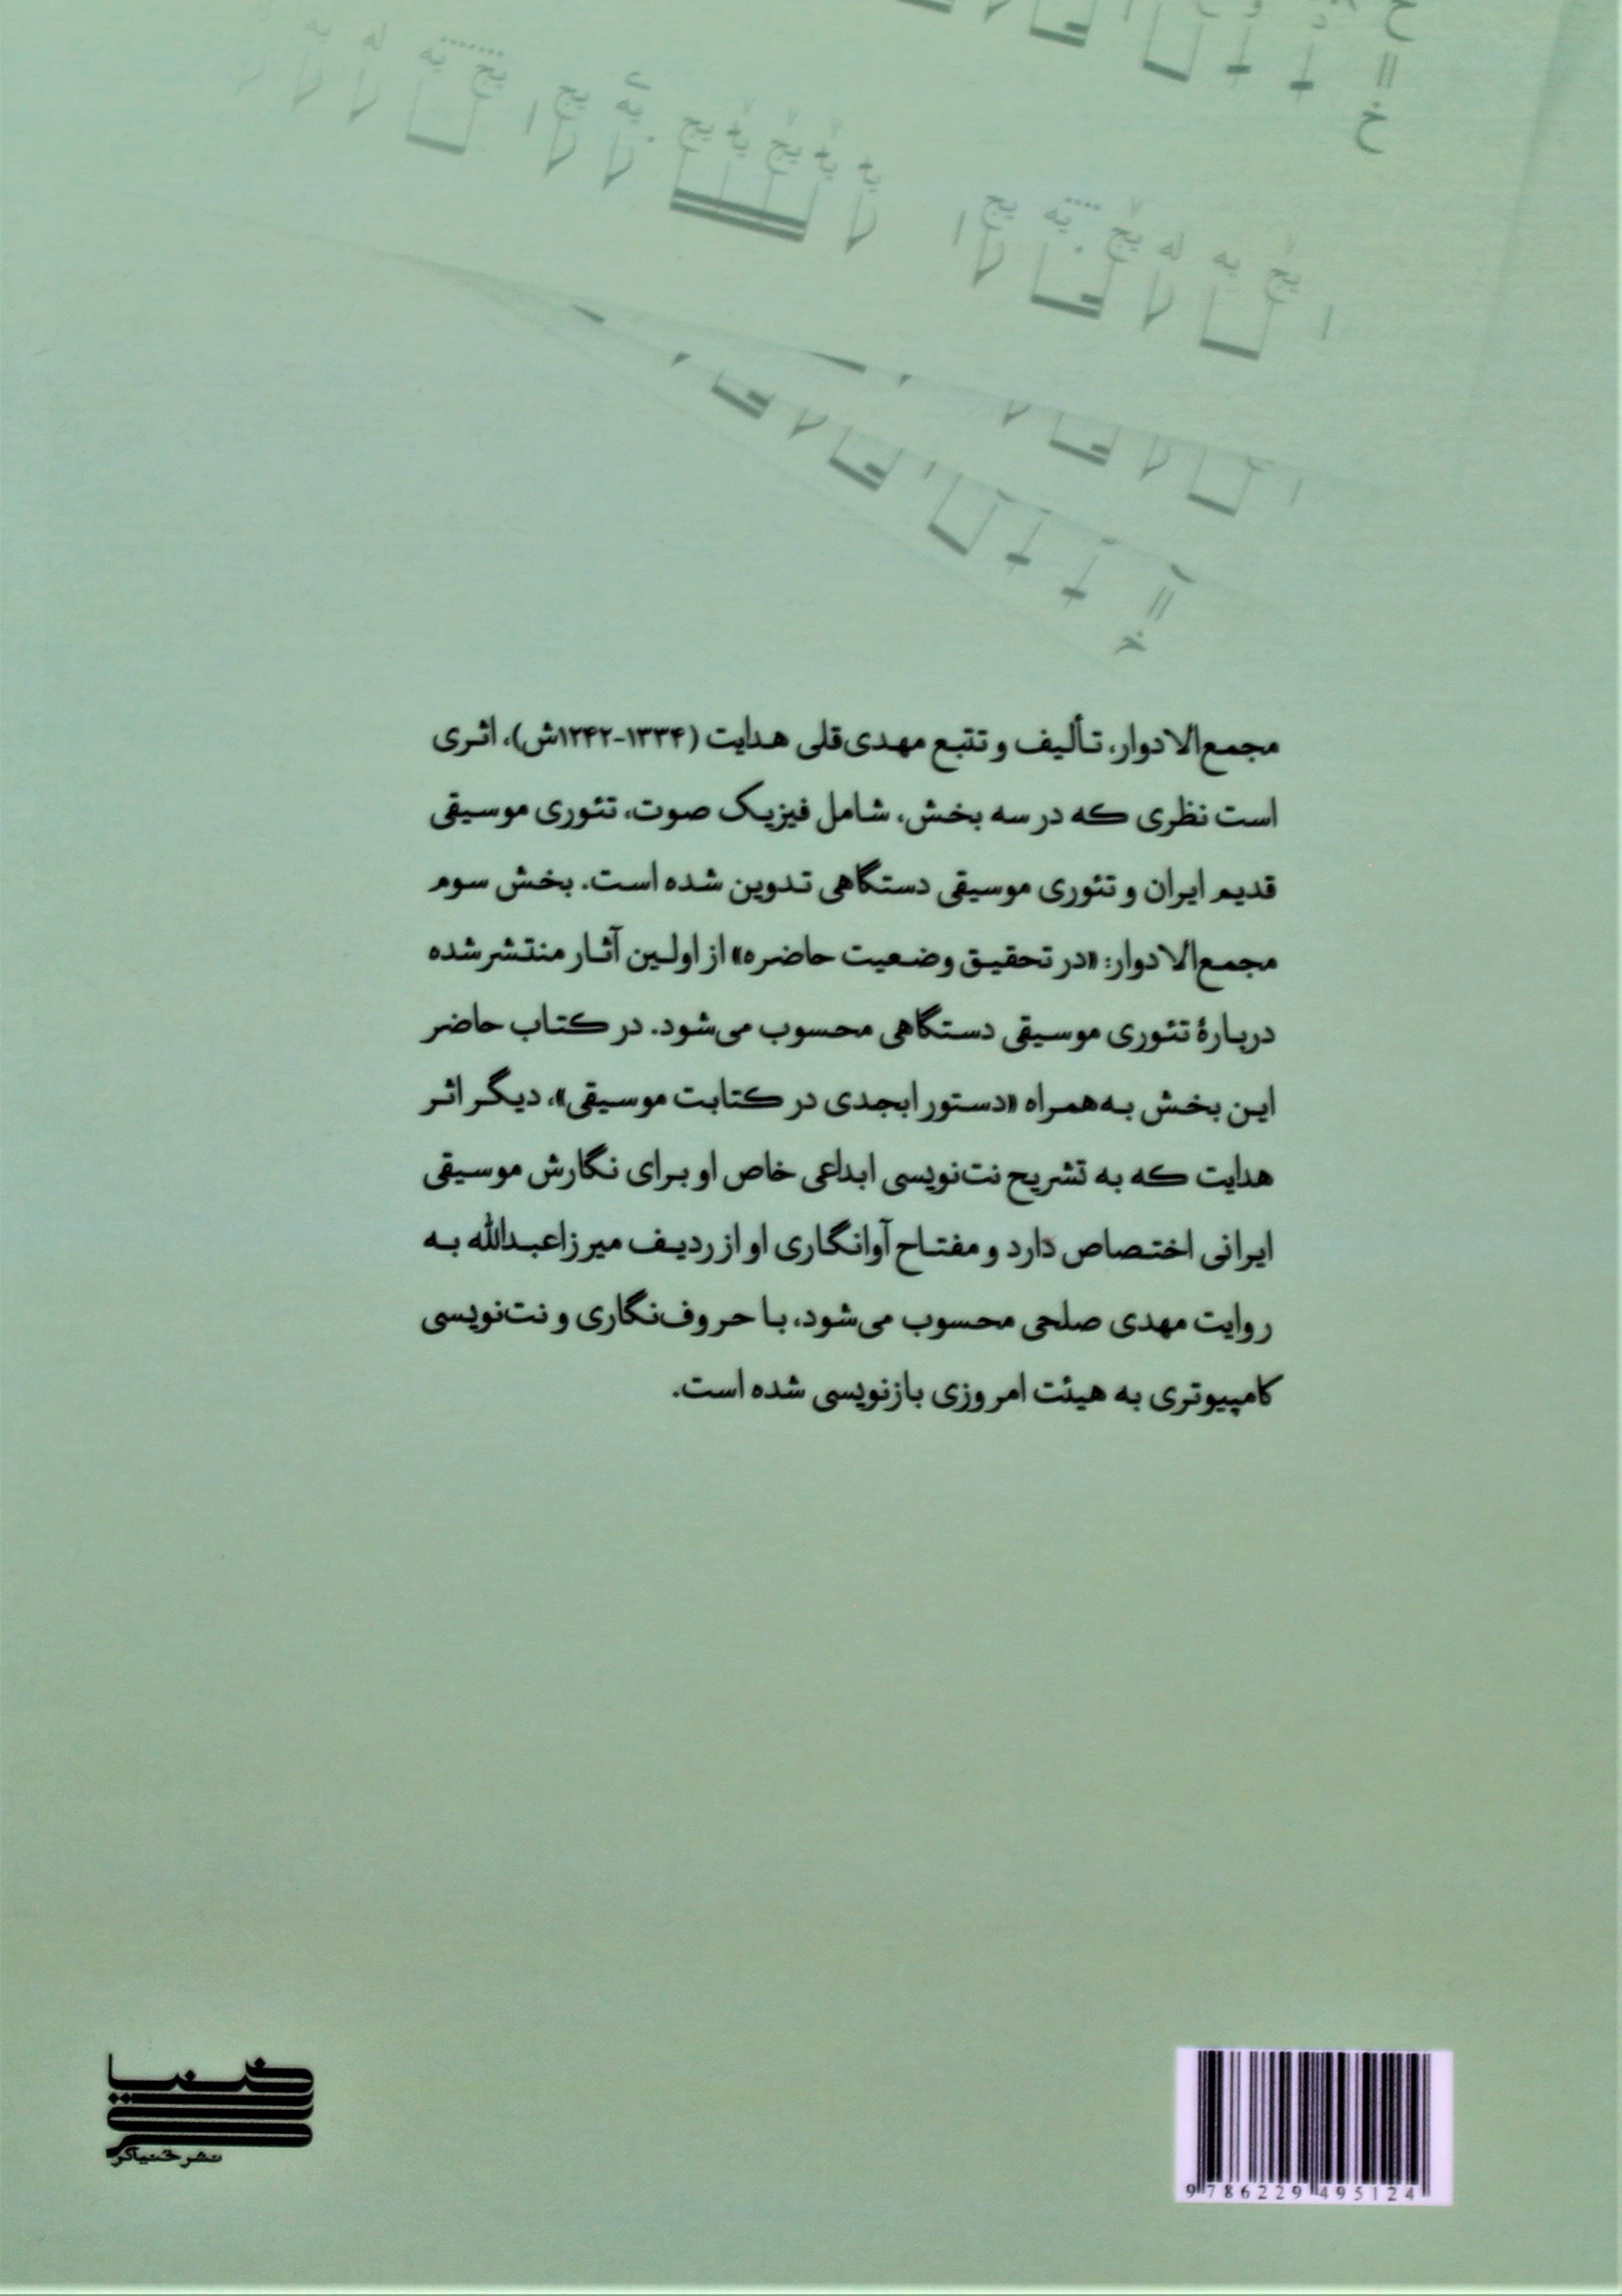 مجمع‌الادوار، تألیف و تتبع مهدی‌قلی هدایت (۱۳۳۴-۱۲۴۲ش)، اثری
است نظری که در سه بخش، شامل فیزیک صوت، تئوری موسیقی
قدیم ایران و تئوری موسیقی دستگاهی تدوین شده است. بخش سوم
مجمع‌الادوار: «در تحقیق وضعیت حاضره» از اولین آثار منتشرشده
دربارهٔ تئوری موسیقی دستگاهی محسوب می‌شود. در کتاب حاضر
این بخش به‌همراه «دستور ابجدی در کتابت موسیقی»، دیگر اثر
هدایت که به تشریح نت‌نویسی ابداعی خاص او برای نگارش موسیقی
ایرانی اختصاص دارد و مفتاح آوانگاری او از ردیف میرزاعبدالله به
روایت مهدی صلحی محسوب می‌شود، با حروف‌نگاری و نت‌نویسی
کامپیوتری به هیئت امروزی بازنویسی شده است.
نشر خنیاگر
9786229495124